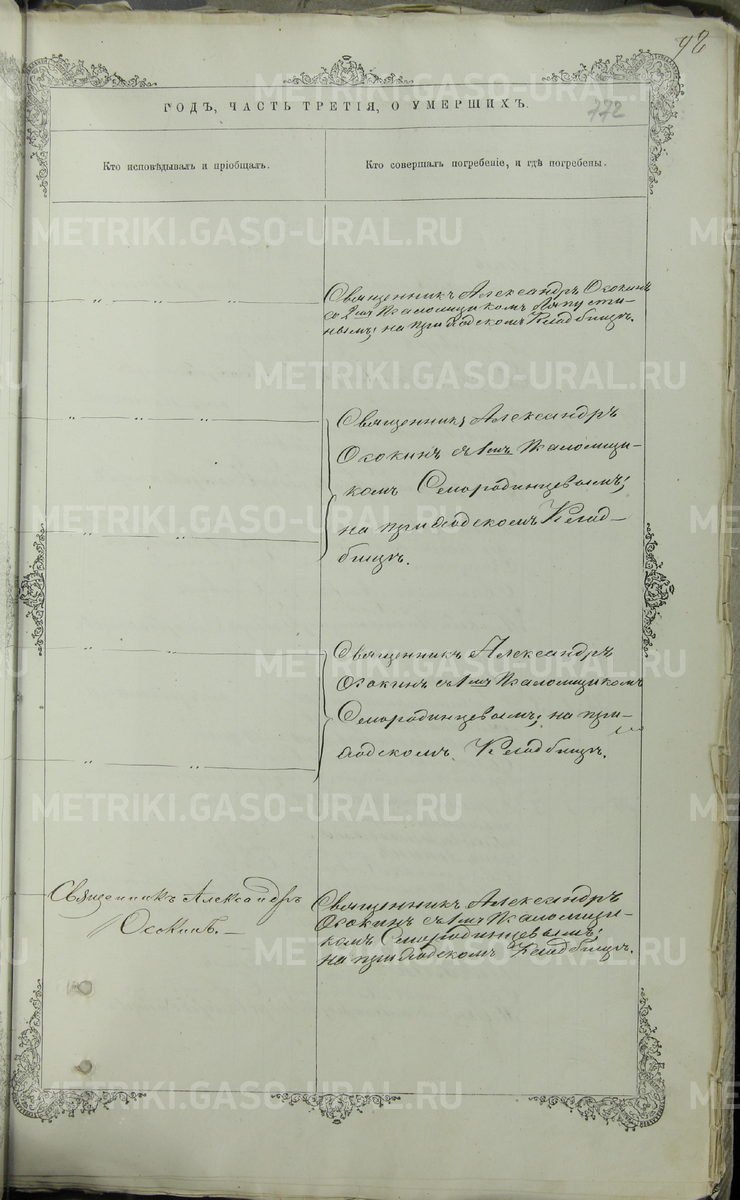 92
772
ГОДЪ, ЧАСТЬ ТРЕТІЯ, О УМЕРШИХЪ.
Кто исповѣдывалъ и пріобщалъ.
Кто совершалъ погребеніе, и гдѣ погребены.
Священникъ Александръ Ососкинъ
со 2мъ Псаломщикомъ
нымъ, на приходскомъ Кладбищѣ.
Священникъ Александръ
Ососкинъ съ 1мъ Псаломщи-
комъ Семородинцевымъ,
на приходскомъ Клад-
бищѣ.
Священникъ Александръ
Ососкинъ съ 1мъ Псаломщикомъ
Семородинцевымъ, на при-
ходскомъ Кладбищѣ.
Священникъ Александръ
Ососкинъ.
Священникъ Александръ
Ососкинъ съ 1мъ Псаломщи-
комъ Семородинцевымъ,
на приходскомъ Кладбищѣ.
METRIKI.GASO-URAL.RU